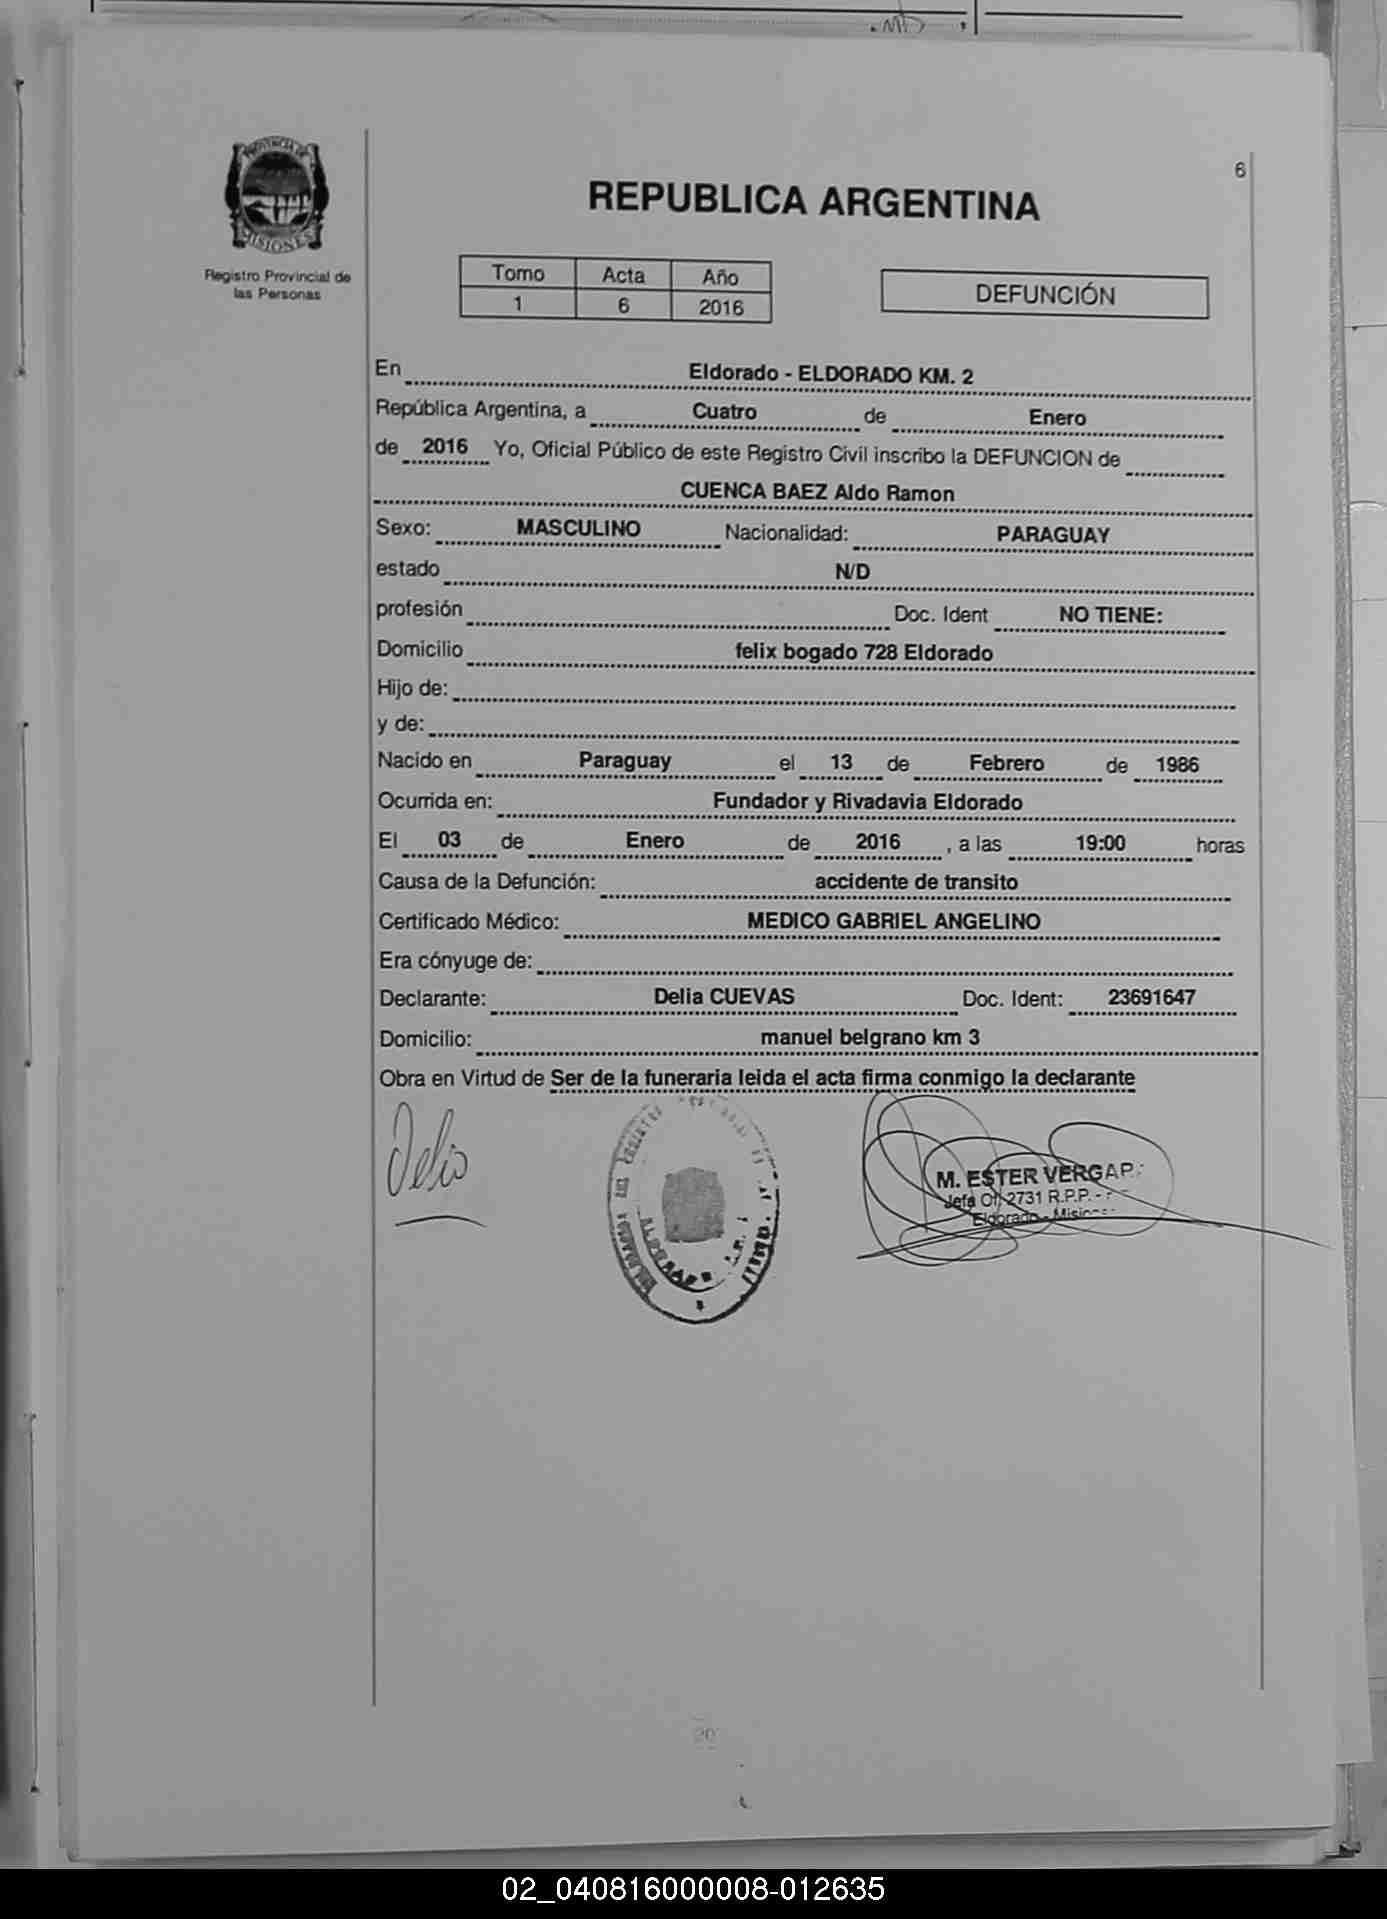 6
PROVINCIA DE
MISIONES
Registro Provincial de
las Personas
REPUBLICA ARGENTINA
Tomo Acta Año
1 6 2016
DEFUNCIÓN
En Eldorado - ELDORADO KM. 2
República Argentina, a Cuatro de Enero
de 2016 Yo, Oficial Público de este Registro Civil inscribo la DEFUNCION de
CUENCA BAEZ Aldo Ramon
Sexo: MASCULINO Nacionalidad: PARAGUAY
estado N/D
profesión Doc. Ident NO TIENE:
Domicilio felix bogado 728 Eldorado
Hijo de:
y de:
Nacido en Paraguay el 13 de Febrero de 1986
Ocurrida en: Fundador y Rivadavia Eldorado
El 03 de Enero de 2016 , a las 19:00 horas
Causa de la Defunción: accidente de transito
Certificado Médico: MEDICO GABRIEL ANGELINO
Era cónyuge de:
Declarante: Delia CUEVAS Doc. Ident: 23691647
Domicilio: manuel belgrano km 3
Obra en Virtud de Ser de la funeraria leida el acta firma conmigo la declarante
Delia
M. ESTER VERGAR
Jefa Of. 2731 R.P.P. -
Eldorado - Misiones
02_040816000008-012635